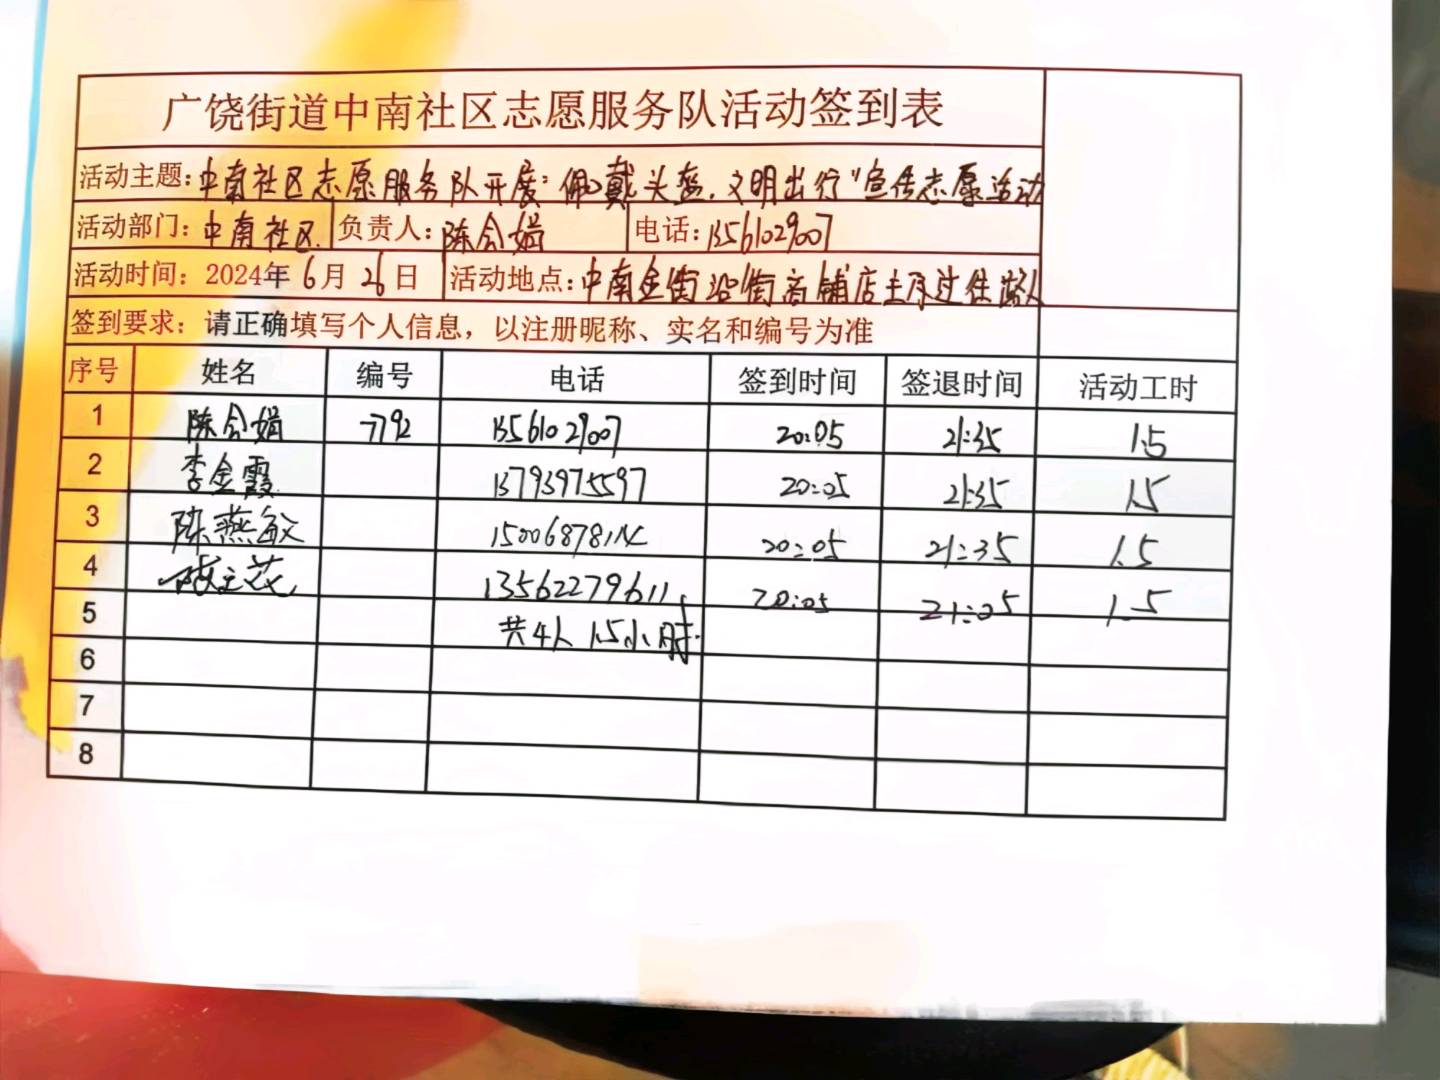 广饶街道中南社区志愿服务队活动签到表
活动主题:中南社区志愿服务队开展“佩戴头盔,文明出行”宣传志愿活动
活动部门:中南社区 负责人:陈会娟 电话:13561029007
活动时间:2024年6月26日 活动地点:中南金街沿街商铺店主及过往路人
签到要求:请正确填写个人信息,以注册昵称、实名和编号为准
序号 姓名 编号 电话 签到时间 签退时间 活动工时
1 陈会娟 7792 13561029007 20:05 21:35 1.5
2 李金霞 13793975597 20:05 21:35 1.5
3 陈燕敏 20:05 21:35 1.5
4 13562279611 20:05 21:05 1.5
5 共4人 1.5小时.
6
7
8